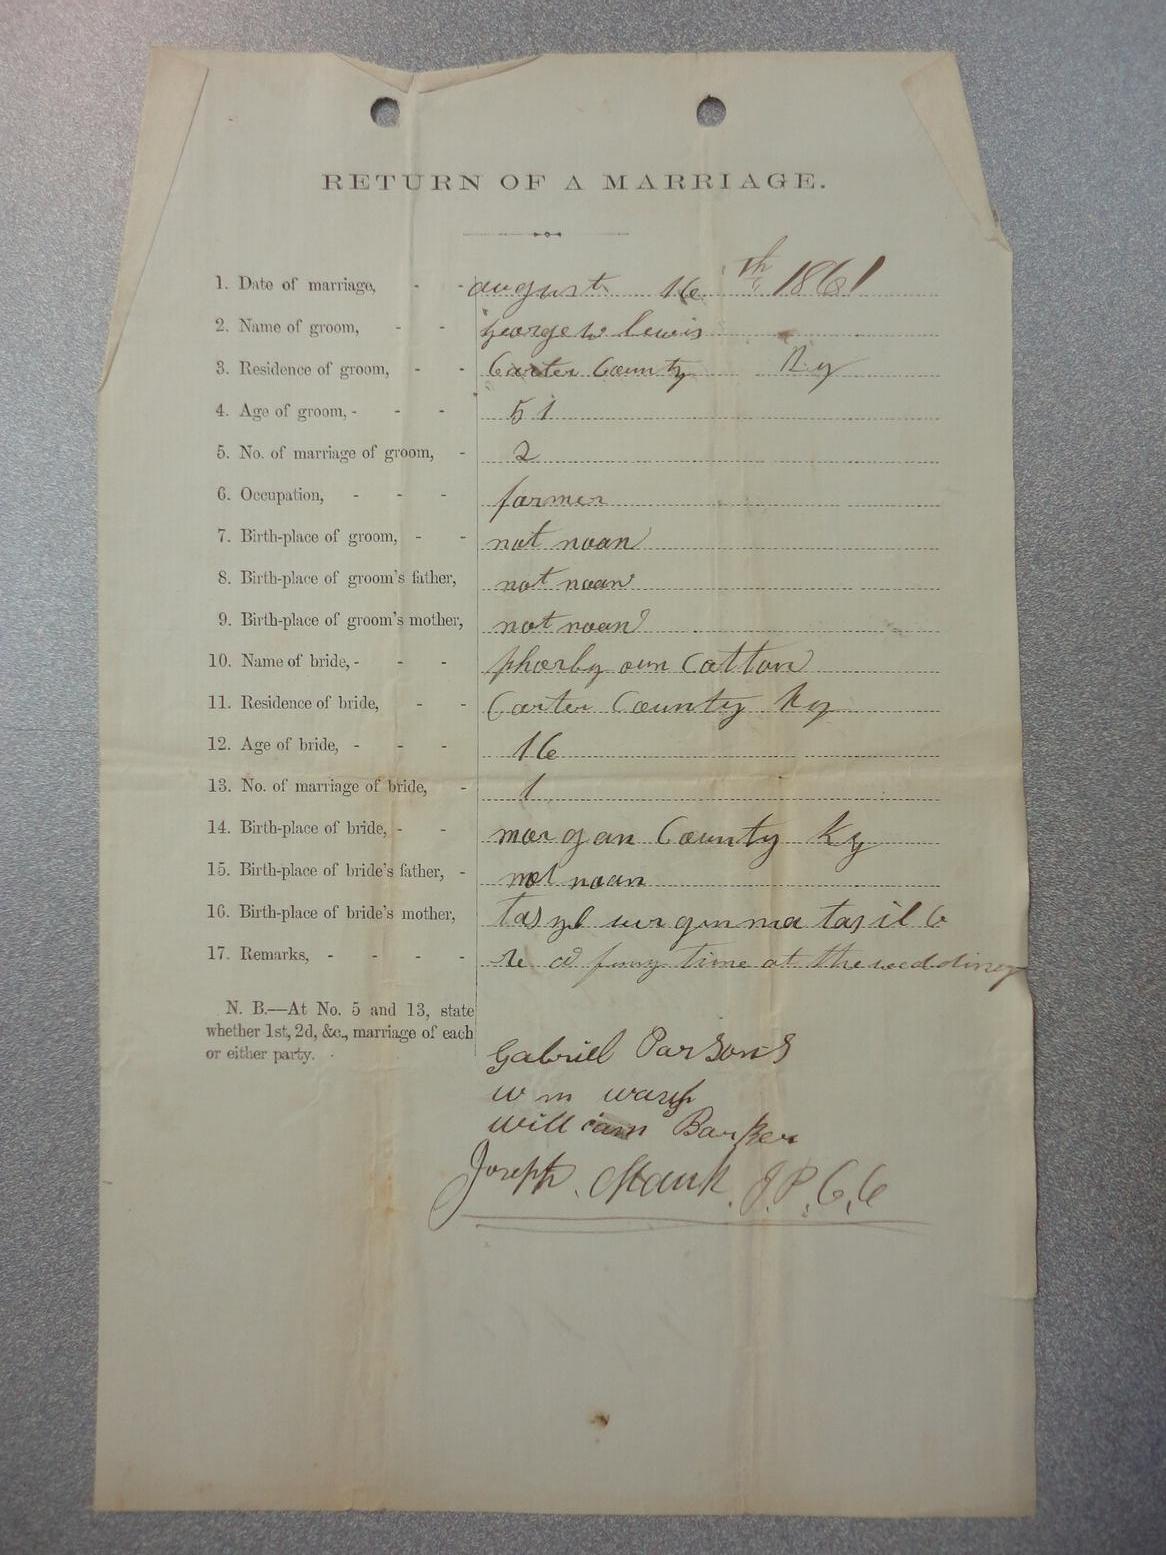 RETURN OF A MARRIAGE.
1. Date of marriage, - - august 16th 1861
2. Name of groom, - - george w lewis
3. Residence of groom, - - Carter County Ky
4. Age of groom, - - - 51
5. No. of marriage of groom, - 2
6. Occupation, - - - farmer
7. Birth-place of groom, - - not noan
8. Birth-place of groom's father, not noan
9. Birth-place of groom's mother, not noan
10. Name of bride, - - - phoeby ann Catton
11. Residence of bride, - - Carter County Ky
12. Age of bride, - - - 16
13. No. of marriage of bride, - 1
14. Birth-place of bride, - - morgan County Ky
15. Birth-place of bride's father, - not noan
16. Birth-place of bride's mother,
17. Remarks, - - - - time at the wedding
N. B.—At No. 5 and 13, state
whether 1st, 2d, &c., marriage of each
or either party.
Gabriel Parsons
wm
william Barker
Joseph J. P. C. C